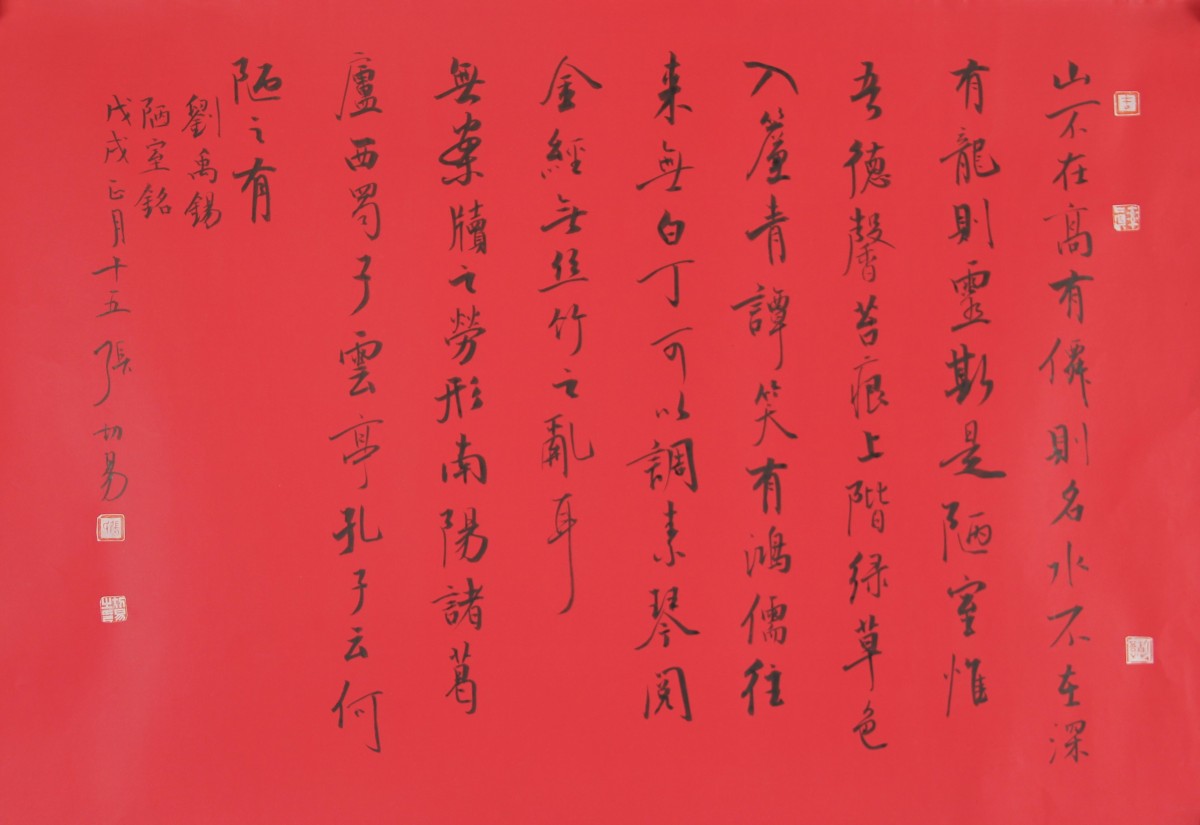 山不在高有僊則名水不在深
有龍則靈斯是陋室惟
吾德馨苔痕上階緑草色
入簾青譚笑有鴻儒往
来無白丁可以調素琴閱
金經無丝竹之亂耳
無案牘之勞形南陽諸葛
廬西蜀子雲亭孔子云何
陋之有
劉禹錫
陋室銘
戊戌正月十五張切易